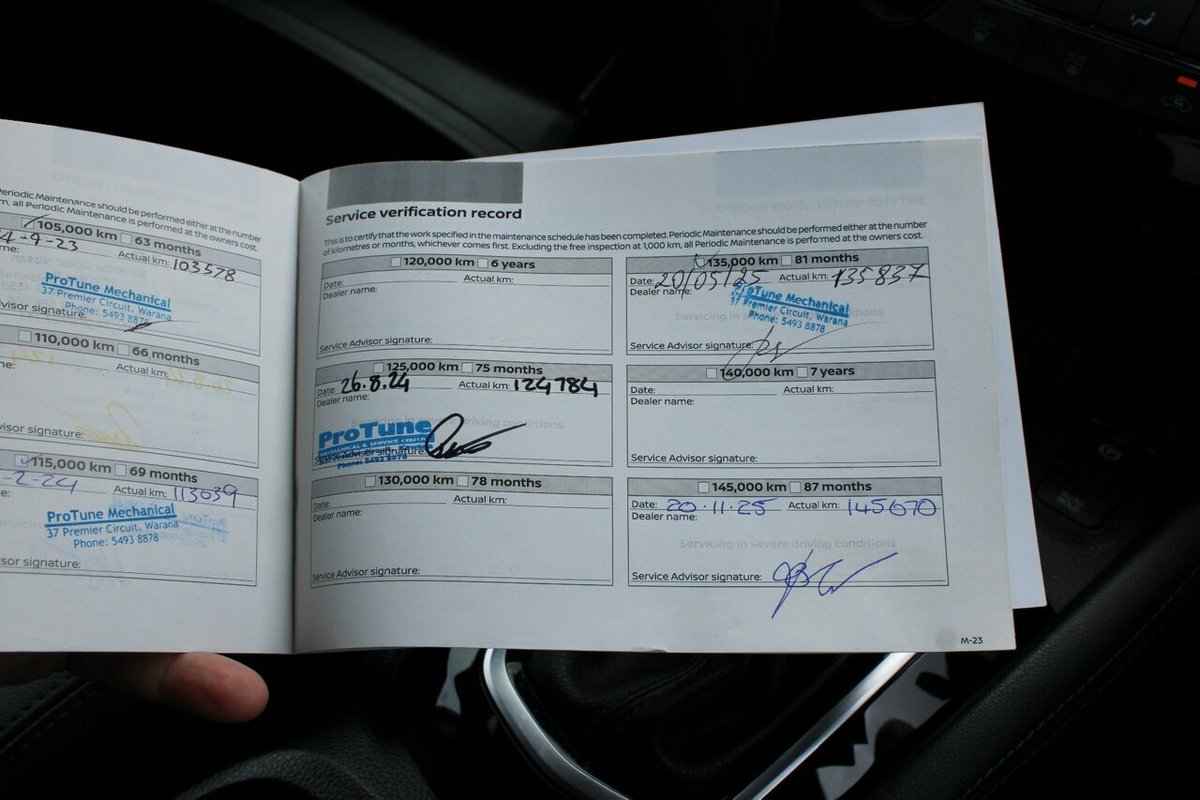 Periodic Maintenance should be performed either at the number
m, all Periodic Maintenance is performed at the owners cost.
105,000 km 63 months
4-9-23
me: Actual km: 103578
ProTune Mechanical
37 Premier Circuit, Warana
Phone: 5493 8878
dvisor signature:
110,000 km 66 months
me: Actual km:
visor signature:
115,000 km 69 months
-2-24 Actual km: 113039
e:
ProTune Mechanical
37 Premier Circuit, Warana
Phone: 5493 8878
signature:
Service verification record
This is to certify that the work specified in the maintenance schedule has been completed. Periodic Maintenance should be performed either at the number
of kilometres or months, whichever comes first. Excluding the free inspection at 1,000 km, all Periodic Maintenance is performed at the owners cost.
120,000 km 6 years
Date: Actual km:
Dealer name:
Service Advisor signature:
125,000 km 75 months
Date: 26.8.24 Actual km: 124784
Dealer name:
ProTune
MECHANICAL & SERVICE CENTRE
Service Advisor signature:
Phone: 5493 8878
130,000 km 78 months
Date: Actual km:
Dealer name:
Service Advisor signature:
135,000 km 81 months
Date: 20/05/25 Actual km: 135837
Dealer name:
ProTune Mechanical
37 Premier Circuit, Warana
Phone: 5493 8878
Service Advisor signature:
140,000 km 7 years
Date: Actual km:
Dealer name:
Service Advisor signature:
145,000 km 87 months
Date: 20.11.25 Actual km: 145670
Dealer name:
Servicing in severe driving conditions
Service Advisor signature:
M-23